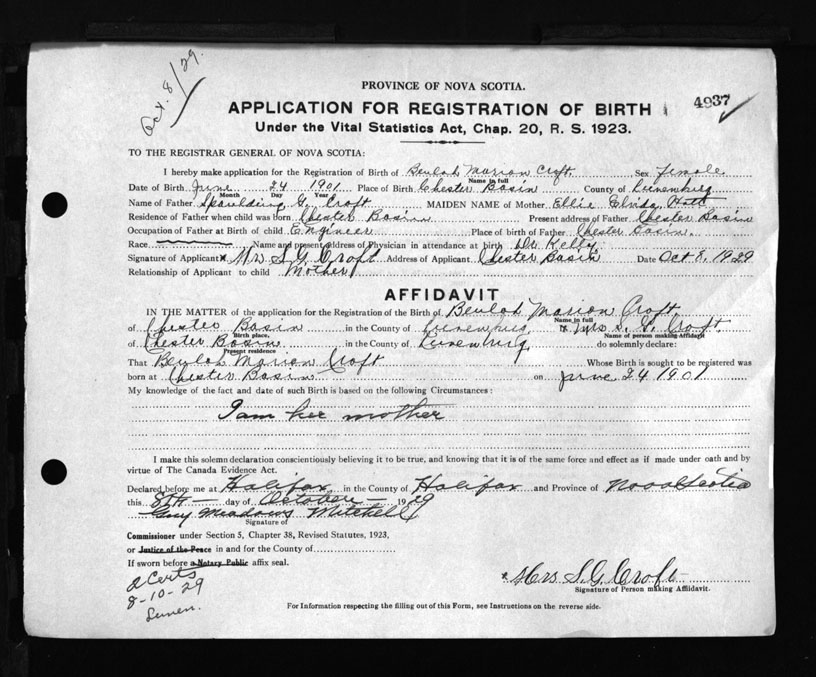 Oct. 8/29.
PROVINCE OF NOVA SCOTIA.
APPLICATION FOR REGISTRATION OF BIRTH
4937
Under the Vital Statistics Act, Chap. 20, R. S. 1923.
TO THE REGISTRAR GENERAL OF NOVA SCOTIA:
I hereby make application for the Registration of Birth of Beulah Marion Croft. Sex Female
Name in full
Date of Birth June 24 1901 Place of Birth Chester Basin County of Lunenburg
Month Day Year
Name of Father Spaulding G. Croft MAIDEN NAME of Mother Ellie Hatt
Residence of Father when child was born Chester Basin Present address of Father Chester Basin
Occupation of Father at Birth of child Engineer Place of birth of Father Chester Basin.
Race Name and present address of Physician in attendance at birth Dr Kelly
Signature of Applicant x Mrs S.G. Croft Address of Applicant Chester Basin Date Oct 8, 1929
Relationship of Applicant to child Mother
AFFIDAVIT
IN THE MATTER of the application for the Registration of the Birth of Beulah Marion Croft
Name in full
of Chester Basin in the County of Lunenburg x Mrs S. G. Croft.
Birth place. Name of person making Affidavit
of Chester Basin in the County of Lunenburg. do solemnly declare:
Present residence
That Beulah Marion Croft Whose Birth is sought to be registered was
born at Chester Basin on June 24 1901
My knowledge of the fact and date of such Birth is based on the following Circumstances:
I am her mother
I make this solemn declaration conscientiously believing it to be true, and knowing that it is of the same force and effect as if made under oath and by
virtue of The Canada Evidence Act.
Declared before me at Halifax in the County of Halifax and Province of Nova Scotia
this 8th day of October 1929
Guy Meadows Mitchell
Signature of
Commissioner under Section 5, Chapter 38, Revised Statutes, 1923.
or Justice of the Peace in and for the County of
If sworn before a Notary Public affix seal.
2 Certs
8-10-29
x Mrs S.G. Croft
Signature of Person making Affidavit.
For Information respecting the filling out of this Form, see Instructions on the reverse side.